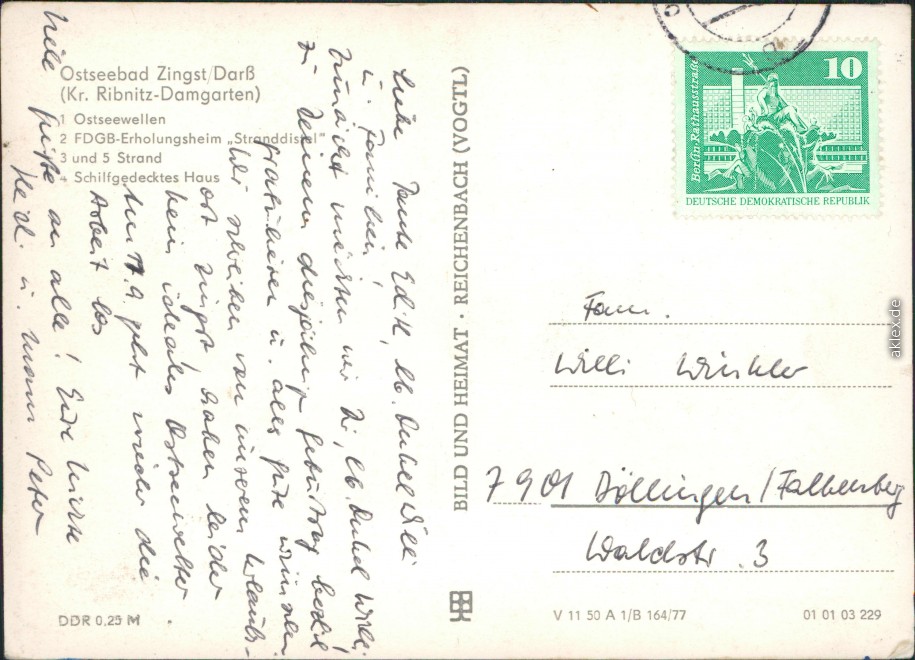 Ostseebad Zingst/Darß
(Kr. Ribnitz-Damgarten)
1 Ostseewellen
2 FDGB-Erholungsheim „Stranddistel"
3 und 5 Strand
4 Schilfgedecktes Haus
Liebe Tante Edith, lb. Onkel Willi
u. Familien!
Zunächst möchten wir Dir, lb. Onkel Willi,
zu Deinem diesjährig. Geburtstag herzl.
gratulieren u. alles gute wünschen!
Wir schreiben von unserem Urlaubs-
ort Zingst, haben leider
kein ideales Ostseewetter
Am 17.9. geht wieder die
Arbeit los
Viele Grüße an alle! Eure Nichte
Heidi u. Mann Peter
DDR 0,25 M
BILD UND HEIMAT · REICHENBACH (VOGTL)
Berlin-Rathausstraße
10
DEUTSCHE DEMOKRATISCHE REPUBLIK
Fam.
Willi Winkler
7901 Döllingen/Falkenberg
Waldstr. 3
V 11 50 A 1/B 164/77
01 01 03 229
aklex.de